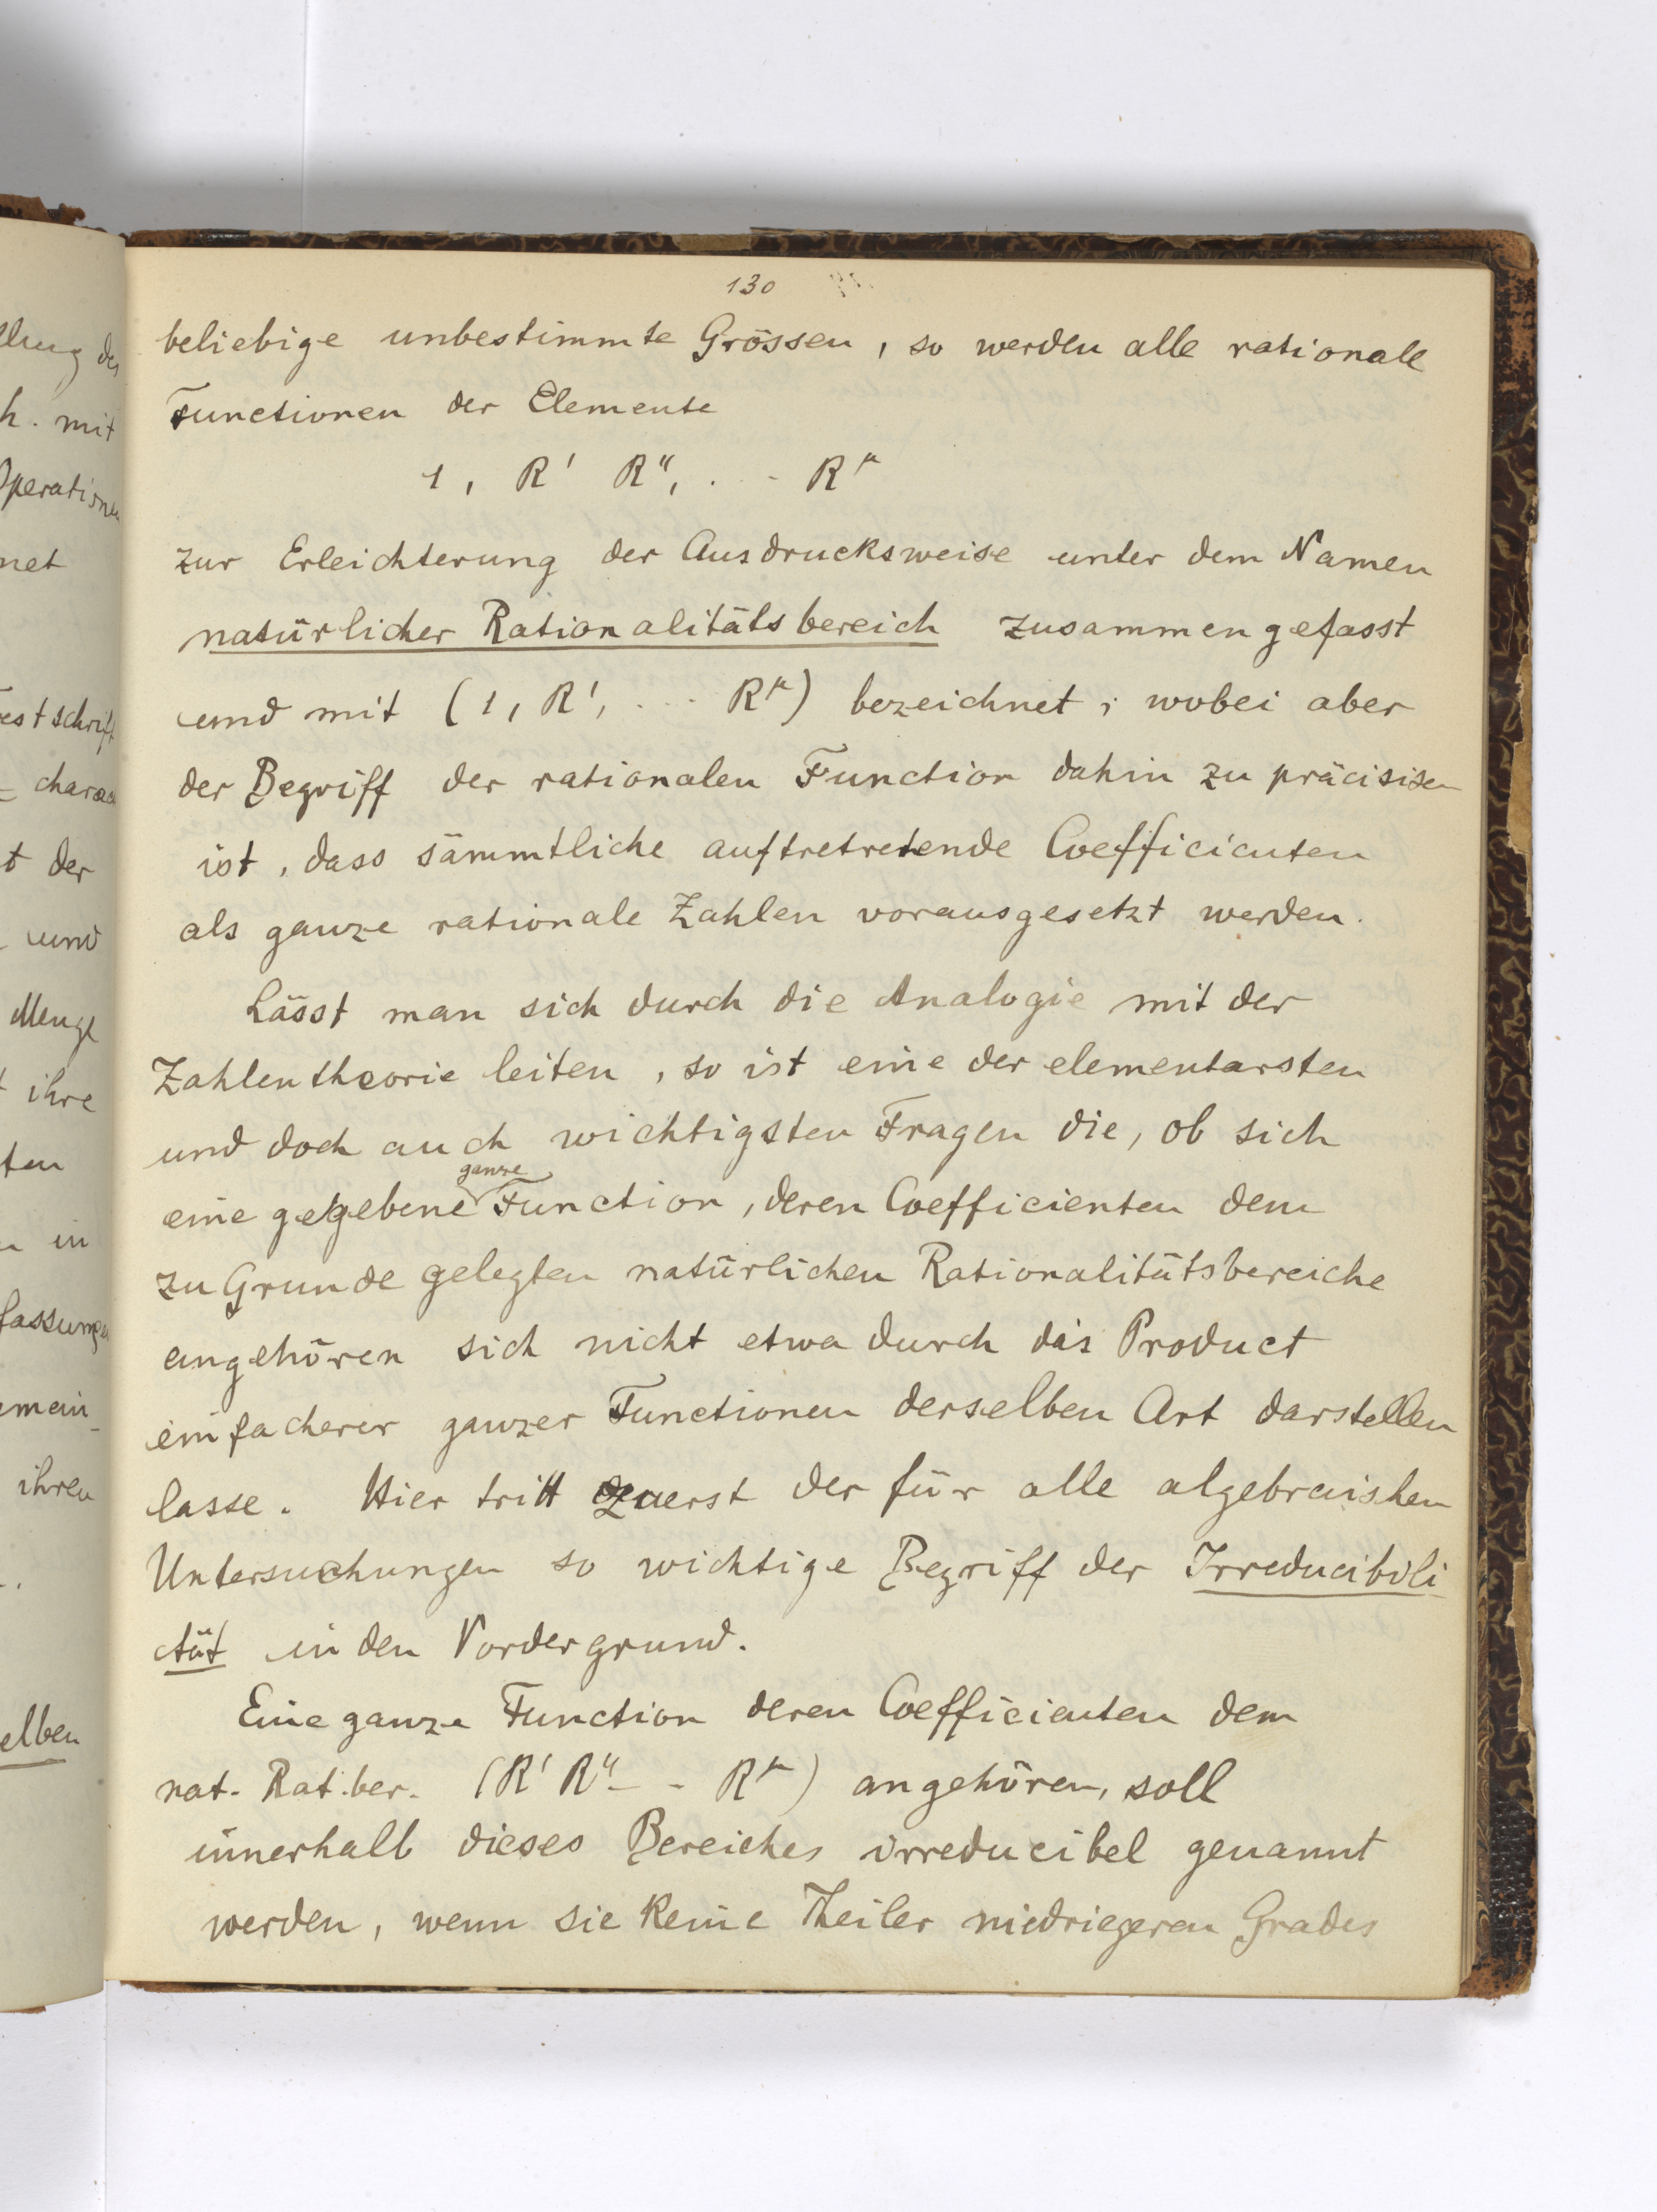 130
beliebige unbestimmte Grössen, so werden alle rationale
Functionen der Elemente
1, R' R'', . - R^μ
zur Erleichterung der Ausdrucksweise unter dem Namen
natürlicher Rationalitätsbereich zusammengefasst
und mit (1, R', . - - R^μ) bezeichnet; wobei aber
der Begriff der rationalen Function dahin zu präcisiren
ist, dass sämmtliche auftretretende Coefficienten
als ganze rationale Zahlen vorausgesetzt werden.
Lässt man sich durch die Analogie mit der
Zahlentheorie leiten, so ist eine der elementarsten
und doch auch wichtigsten Fragen die, ob sich
eine gegebene ganze Function, deren Coefficienten dem
zu Grunde gelegten natürlichen Rationalitätsbereiche
angehören sich nicht etwa durch das Product
einfacherer ganzer Functionen derselben Art darstellen
lasse. Hier tritt zuerst der für alle algebraischen
Untersuchungen so wichtige Begriff der Irreducibili
tät in den Vordergrund.
Eine ganze Function deren Coefficienten dem
nat. Rat.ber. (R' R'' - - R^μ) angehören, soll
innerhalb dieses Bereiches irreducibel genannt
werden, wenn sie keine Theiler niedrigeren Grades
llung des
h. mit
Operationen
net
estschrift
t der
und
Menge
ihre
ten
in
fassungen
mein-
ihren
elben